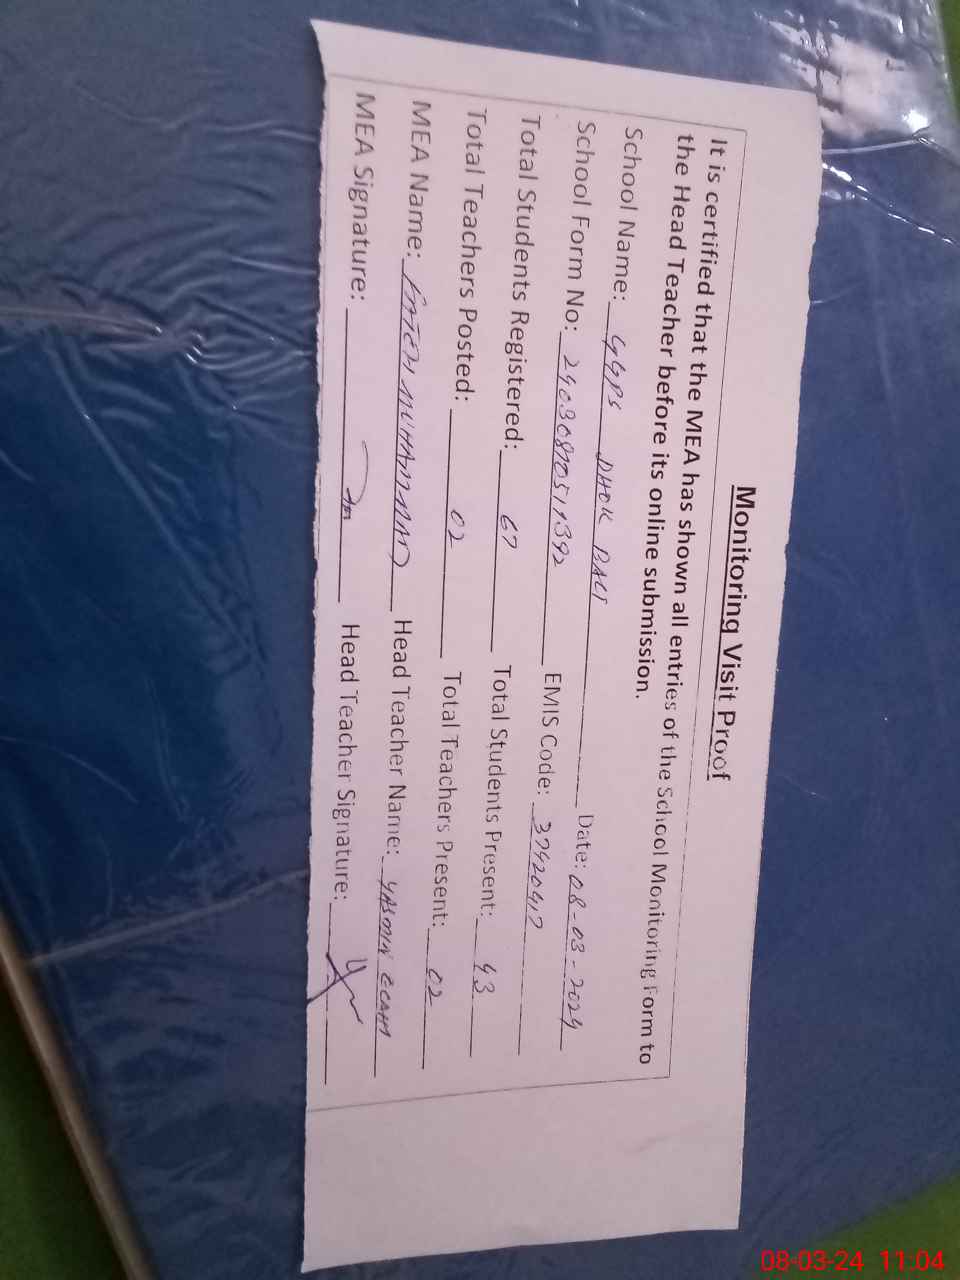 Monitoring Visit Proof
It is certified that the MEA has shown all entries of the School Monitoring Form to
the Head Teacher before its online submission.
School Name: GGPS DHOK BALI Date: 08-03-2024
School Form No: EMIS Code: 37420417
Total Students Registered: 67 Total Students Present: 43
Total Teachers Posted: 02 Total Teachers Present: 02
MEA Name: FATEH MUHAMMAD Head Teacher Name: YASMIN
MEA Signature: Head Teacher Signature:
08-03-24 11:04